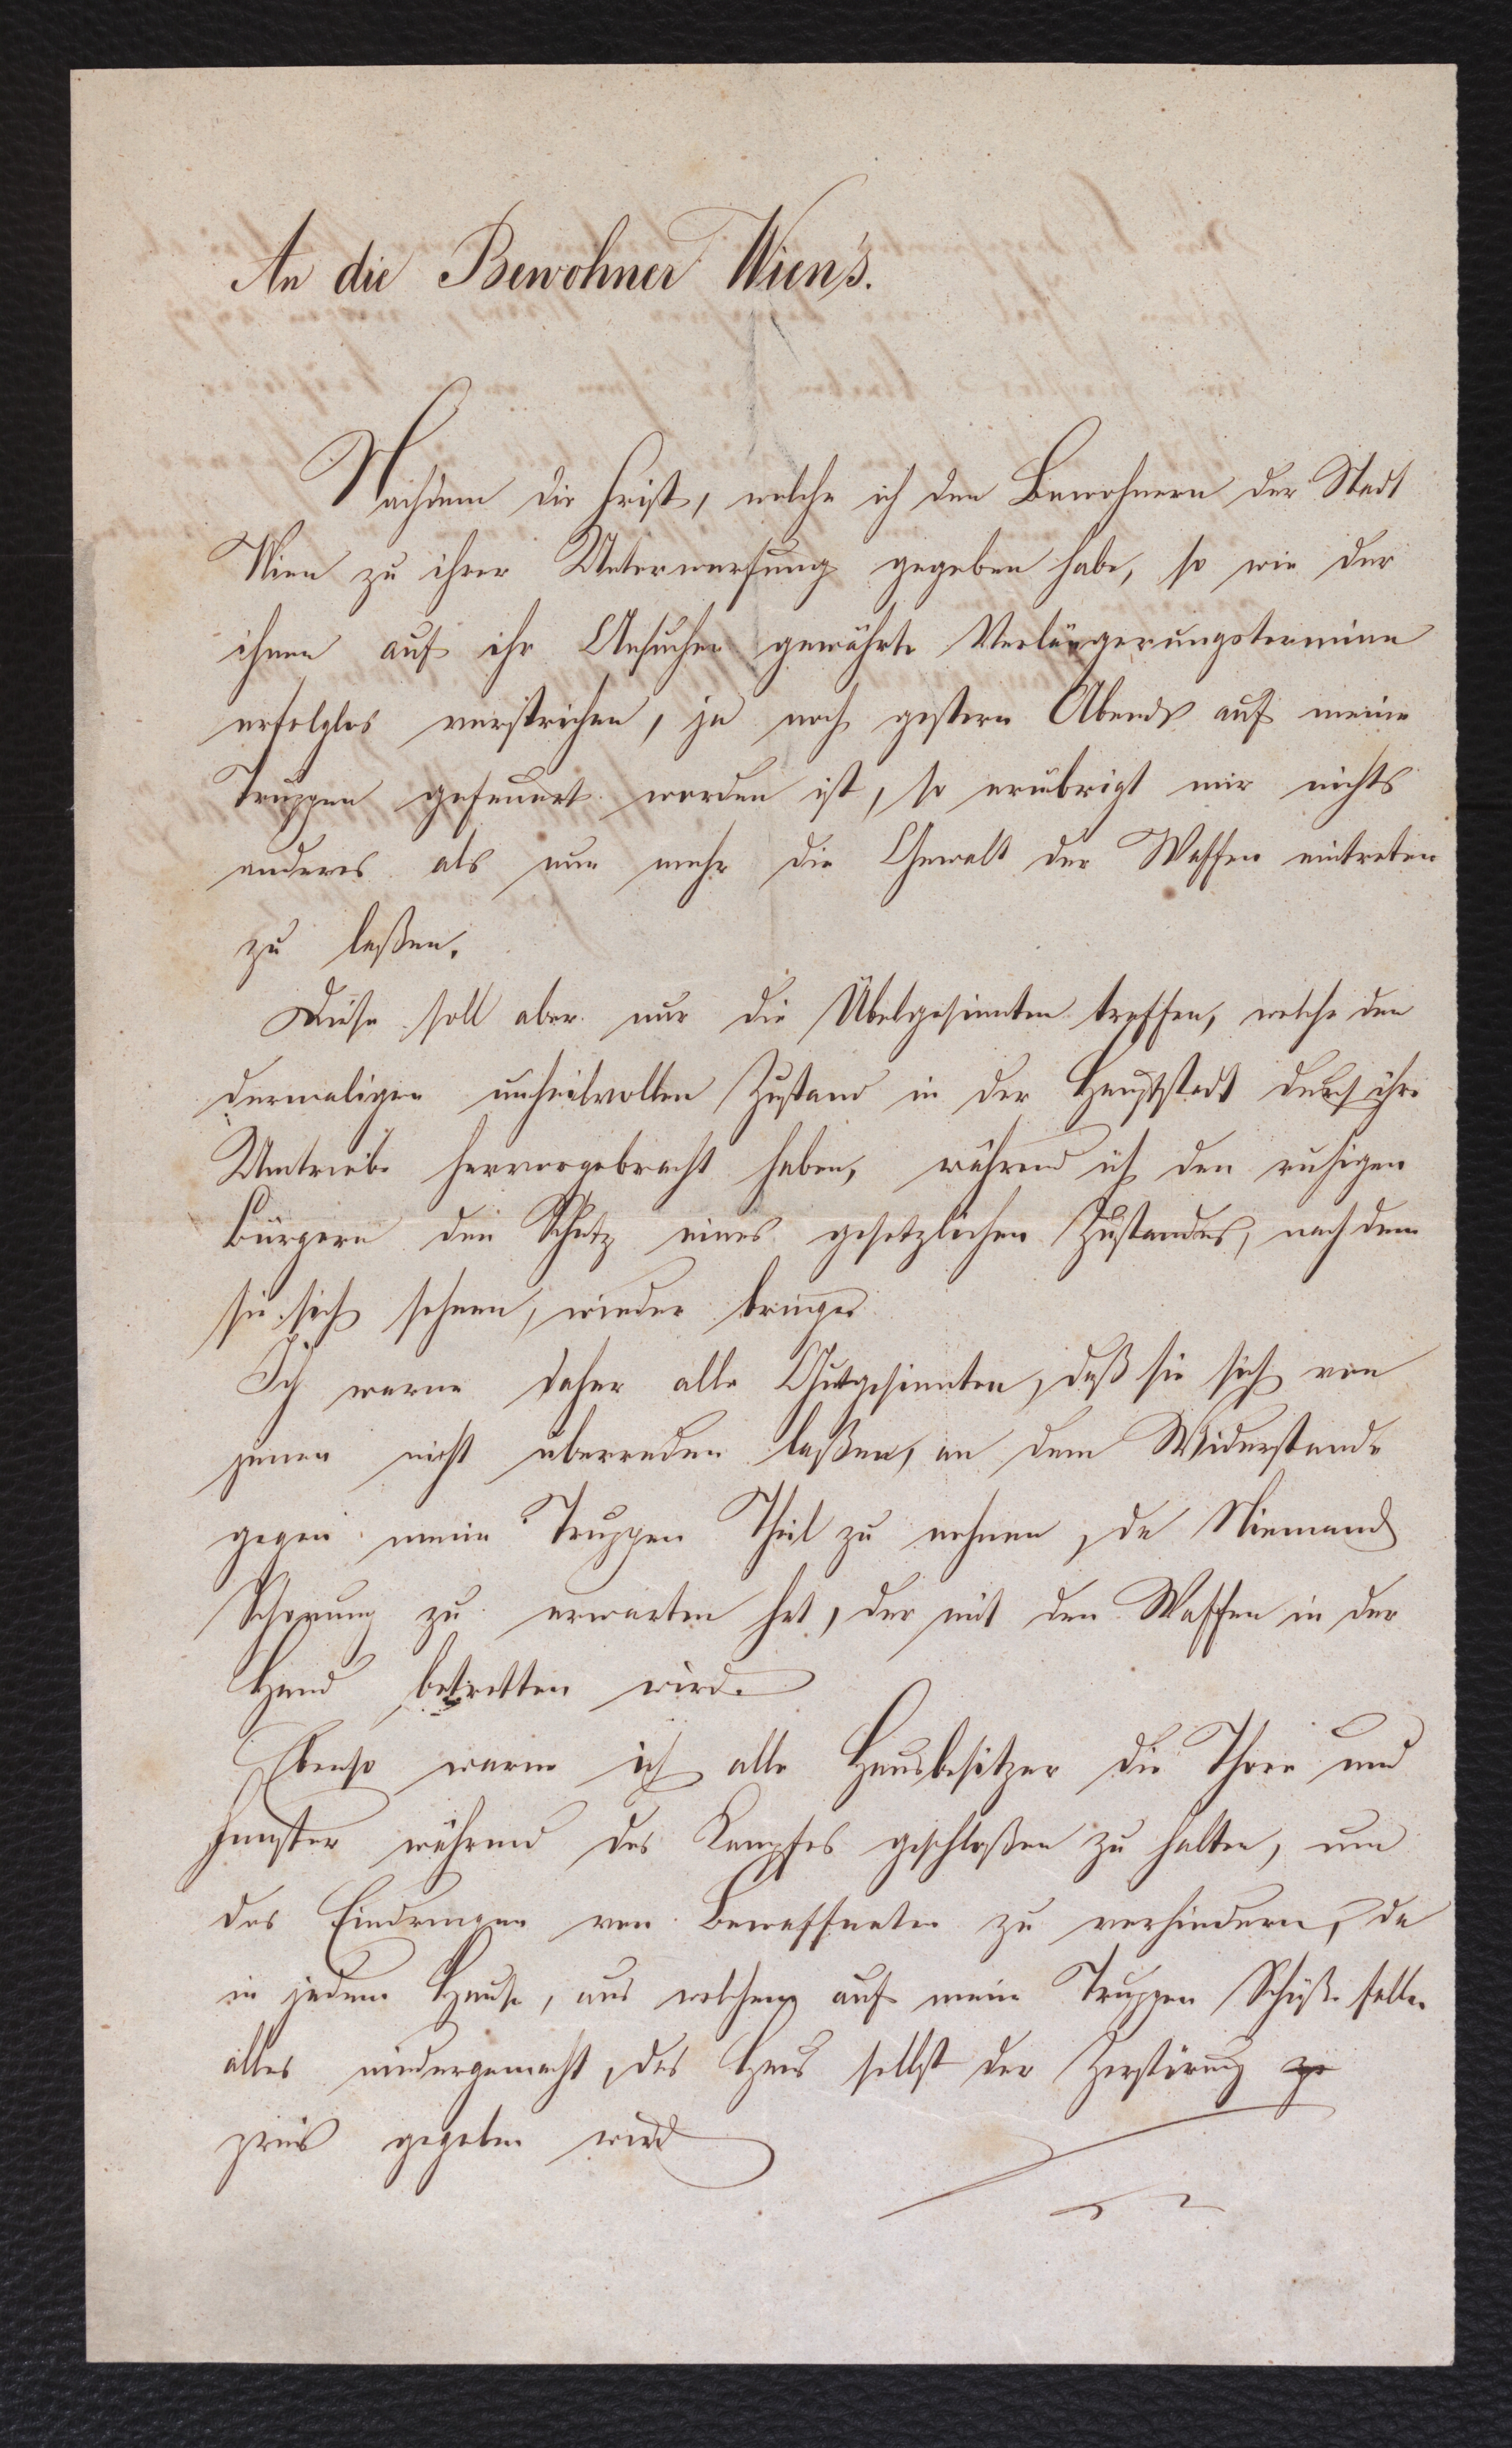 An die Bewohner Wien's.
Nachdem die Frist, welche ich den Bewohnern der Stadt
Wien zu ihrer Unterwerfung gegeben habe, so wie der
ihnen auf ihr Ansuchen gewährte Verlängerungstermine
erfolglos verstrichen, ja noch gestern Abends auf meine
Truppen gefeuert worden ist, so erübrigt mir nichts
anderes als nun mehr die Gewalt der Waffen eintreten
zu laßen.
Diese soll aber nur die Übelgesinnten treffen, welche den
dermaligen unheilvollen Zustand in der Hauptstadt durch ihre
Umtriebe hervorgebracht haben, während ich den ruhigen
Bürgern den Schutz eines gesetzlichen Zustandes, nach dem
sie sich sehnen, wieder bringe
Ich warne daher alle Gutgesinnten, daß sie sich von
jenen nicht überreden laßen, an dem Widerstande
gegen meine Truppen Theil zu nehmen, da Niemand
Schonung zu erwarten hat, der mit den Waffen in der
Hand betretten wird.
Ebenso warne ich alle Hausbesitzer die Thore und
Fenster während des Kampfes geschloßen zu halten, um
das Eindringen von Bewaffneten zu verhindern, da
in jedem Hause, aus welchem auf meine Truppen Schüße fallen
alles niedergemacht, das Haus selbst der Zerstörung
preis gegeben wird